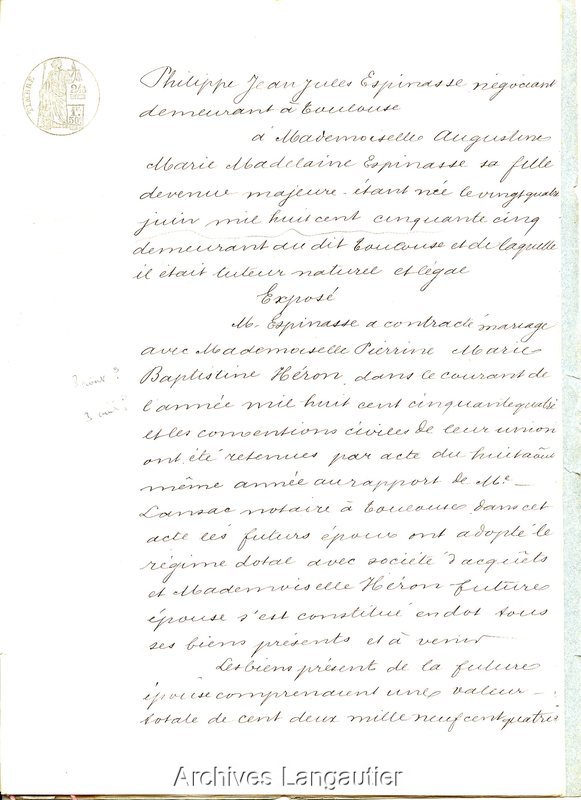 TIMBRE
Philippe Jean Jules Espinasse négociant
demeurant à Toulouse
à Mademoiselle Augustine
Marie Madelaine Espinasse sa fille
devenue majeure étant née le vingt quatre
juin mil huit cent cinquante cinq
demeurant au dit Toulouse et de laquelle
il était tuteur naturel et légal
Exposé
M. Espinasse a contracté mariage
avec Mademoiselle Pierrine Marie
Baptistine Héron, dans le courant de
l'année mil huit cent cinquante quatre
et les conventions civiles de leur union
ont été retenues par acte du huit août
même année au rapport de Me
Lansac notaire à Toulouse dans cet
acte les futurs époux ont adopté le
régime dotal avec société d'acquêts
et Mademoiselle Héron future
épouse s'est constitué en dot tous
ses biens présents et à venir
Les biens présent de la future
épouse comprenaient une valeur
totale de cent deux mille neuf cent quatre
Archives Langautier